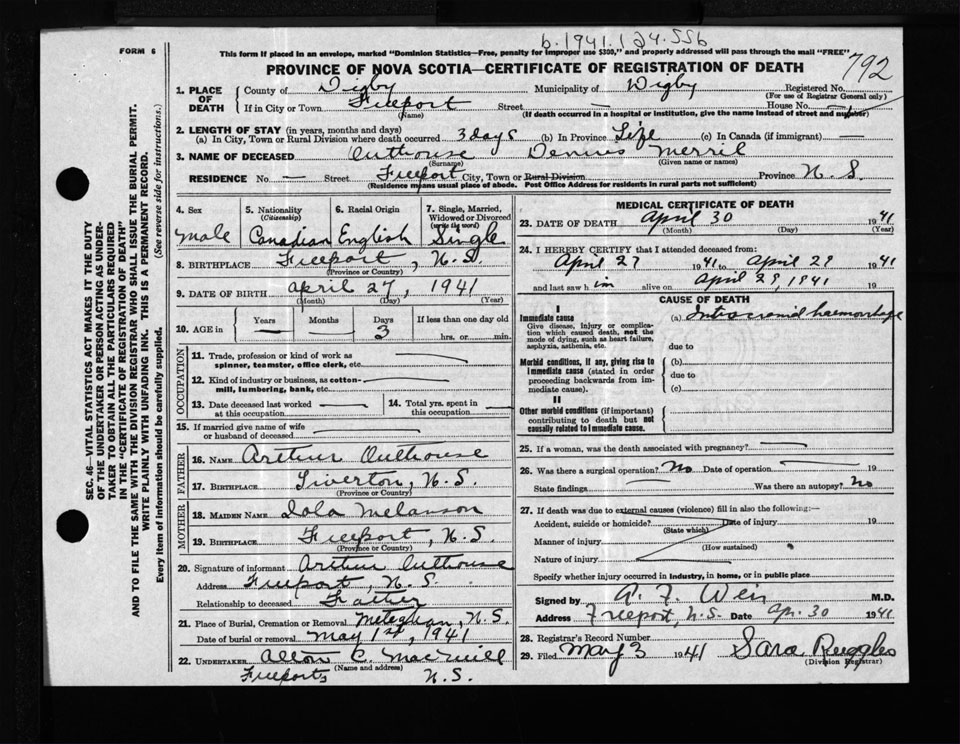 b.1941.124.556
FORM 6
This form if placed in an envelope, marked "Dominion Statistics—Free, penalty for improper use $300," and properly addressed will pass through the mail "FREE"
792
PROVINCE OF NOVA SCOTIA—CERTIFICATE OF REGISTRATION OF DEATH
1. PLACE OF DEATH County of Digby Municipality of Digby Registered No.
(For use of Registrar General only)
If in City or Town Freeport Street — House No. —
(Name) (If death occurred in a hospital or institution, give the name instead of street and number)
2. LENGTH OF STAY (in years, months and days)
(a) In City, Town or Rural Division where death occurred 3 days (b) In Province Life (c) In Canada (if immigrant) —
3. NAME OF DECEASED Outhouse Dennis Merril
(Surname) (Given name or names)
RESIDENCE No. — Street Freeport City, Town or Rural Division Province N. S.
(Residence means usual place of abode. Post Office Address for residents in rural parts not sufficient)
SEC. 46—VITAL STATISTICS ACT MAKES IT THE DUTY
OF THE UNDERTAKER OR PERSON ACTING AS UNDER-
TAKER TO OBTAIN ALL THE PARTICULARS REQUIRED
IN THE "CERTIFICATE OF REGISTRATION OF DEATH"
AND TO FILE THE SAME WITH THE DIVISION REGISTRAR WHO SHALL ISSUE THE BURIAL PERMIT.
WRITE PLAINLY WITH UNFADING INK. THIS IS A PERMANENT RECORD.
Every item of information should be carefully supplied. (See reverse side for instructions.)
4. Sex 5. Nationality (Citizenship) 6. Racial Origin 7. Single, Married, Widowed or Divorced (write the word)
Male Canadian English Single
8. BIRTHPLACE Freeport, N.S.
(Province or Country)
9. DATE OF BIRTH April 27, 1941
(Month) (Day) (Year)
10. AGE in Years Months Days If less than one day old
— — 3 hrs. or min.
OCCUPATION
11. Trade, profession or kind of work as
spinner, teamster, office clerk, etc. —
12. Kind of industry or business, as cotton-
mill, lumbering, bank, etc. —
13. Date deceased last worked at this occupation — 14. Total yrs. spent in this occupation —
15. If married give name of wife
or husband of deceased —
FATHER
16. NAME Arthur Outhouse
17. BIRTHPLACE Tiverton, N.S.
(Province or Country)
MOTHER
18. MAIDEN NAME Iola Melanson
19. BIRTHPLACE Freeport, N.S.
(Province or Country)
20. Signature of informant Arthur Outhouse
Address Freeport, N.S.
Relationship to deceased Father
21. Place of Burial, Cremation or Removal Meteghan, N.S.
Date of burial or removal May 1st, 1941
22. UNDERTAKER
(Name and address)
N.S.
MEDICAL CERTIFICATE OF DEATH
23. DATE OF DEATH April 30 1941
(Month) (Day) (Year)
24. I HEREBY CERTIFY that I attended deceased from:
April 27 1941 to April 29 1941
and last saw him alive on April 29, 1941 19
CAUSE OF DEATH
Immediate cause (a) Intracranial haemorrhage
Give disease, injury or complica-
tion which caused death, not the
mode of dying, such as heart failure,
asphyxia, asthenia, etc. due to
Morbid conditions, if any, giving rise to (b)
immediate cause (stated in order due to
proceeding backwards from im-
mediate cause). (c)
II
Other morbid conditions (if important)
contributing to death but not
causally related to immediate cause.
25. If a woman, was the death associated with pregnancy? —
26. Was there a surgical operation? No Date of operation — 19
State findings — Was there an autopsy? No
27. If death was due to external causes (violence) fill in also the following:—
Accident, suicide or homicide? Date of injury 19
(State which)
Manner of injury
(How sustained)
Nature of injury
Specify whether injury occurred in industry, in home, or in public place
Signed by A. F. Weir M.D.
Address Freeport, N.S. Date Ap. 30 1941
28. Registrar's Record Number
29. Filed May 3 1941 Sara Ruggles
(Division Registrar)